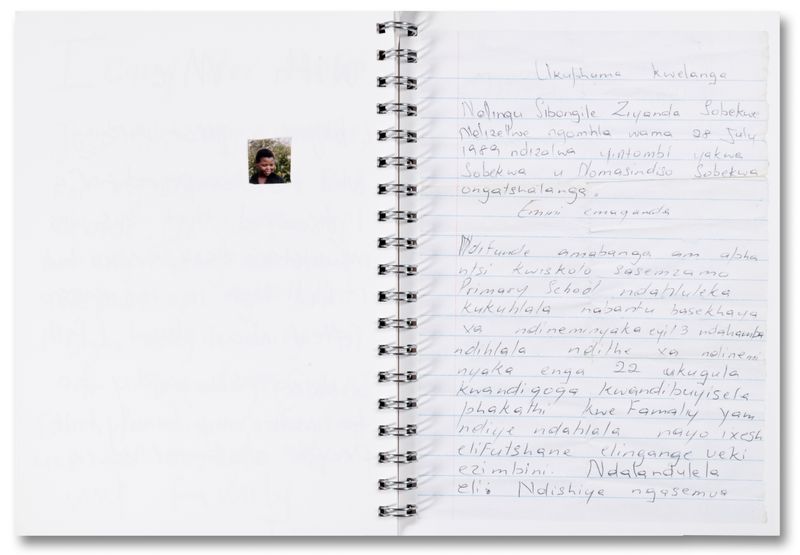 Ukuphuma kwelanga
Ndingu Sibongile Ziyanda Sobekwa
Ndizelwe ngomhla wama 28 July
1989 ndizalwa yintombi yakwa
Sobekwa u Nomasindiso Sobekwa
onyatshalanga.
Emini emaqanda
Ndifunde amabanga am apha
ntsi kwiskolo sasemzamo
Primary School ndahluleka
kukuhlala nabantu basekhaya
xa ndineminyaka eyi13 ndahamba
ndihlala ndithe xa ndinemi
nyaka enga 22 ukugula
kwandigoga kwandibuyisela
phakathi kwe Famaly yam
ndiye ndahlala nayo ixesh
elifutshane elingange veki
ezimbini. Ndalandulela
eli: Ndishiye ngasemva